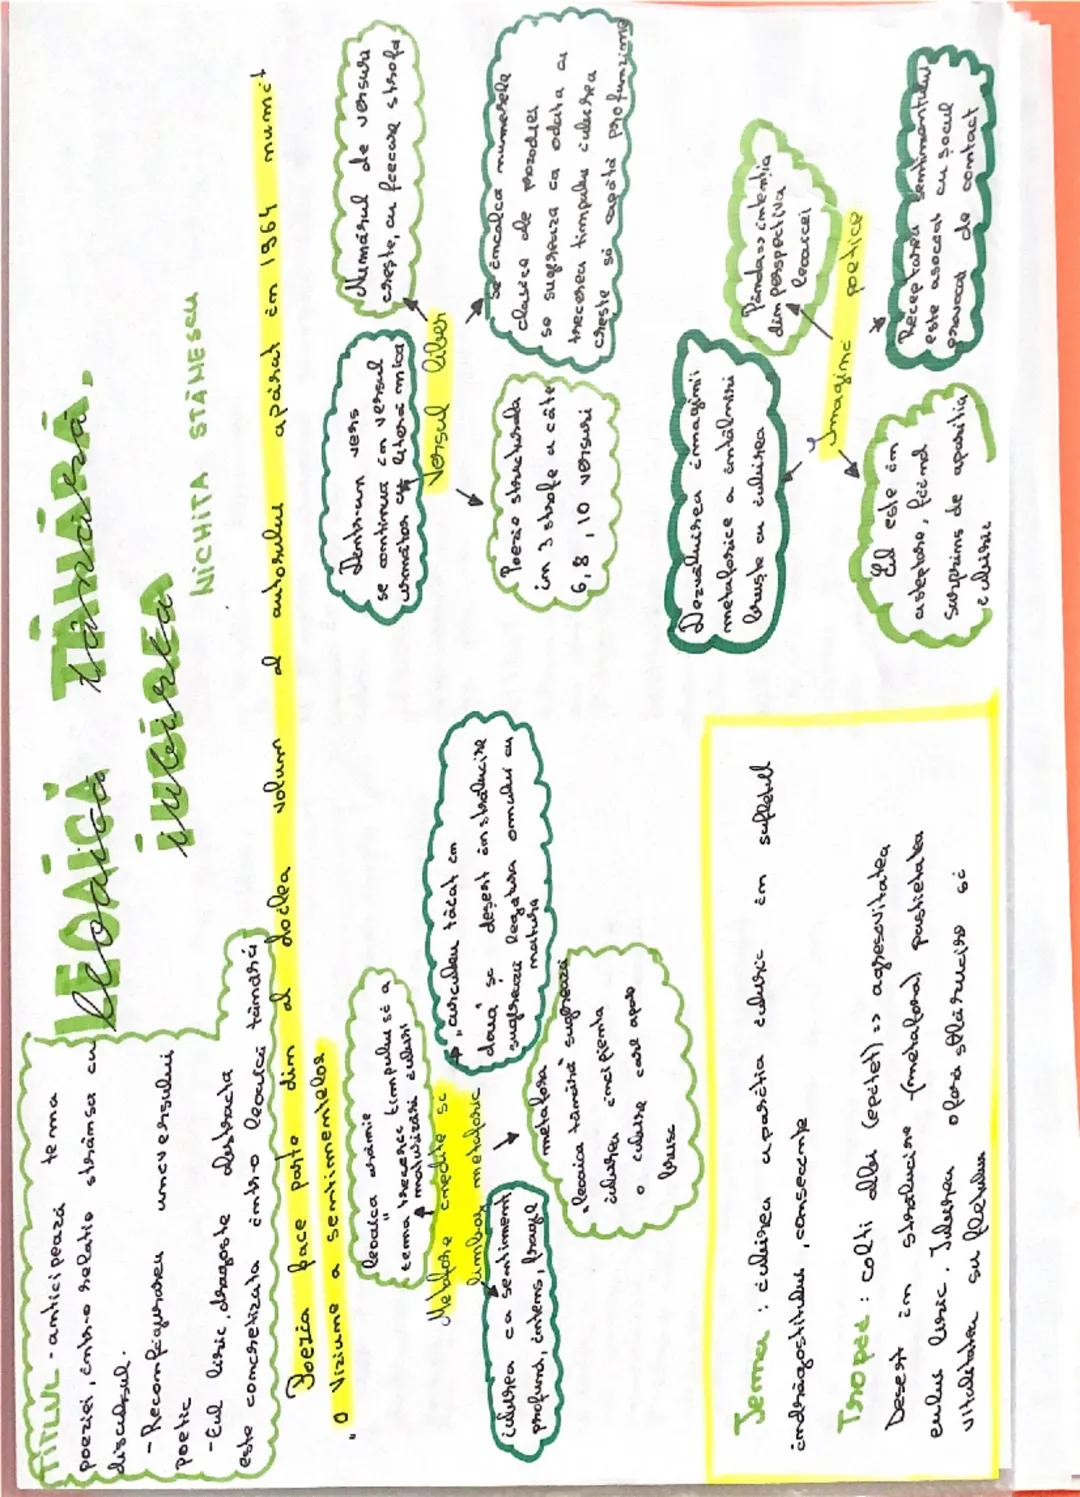 LEOAICĂ TÂNĂRĂ,
Leoaică tânără,
iUBiREA
iubirea
NICHITA STĂNESCU
TITLUL - anticipează tema
poeziei, intr-o relatie strânsa cu
discursul.
- Reconfigurarea universului
poetic
- Eul liric, dragoste abstracta
este concretizata intr-o leoaica tânără
Poezia face parte din al doilea volum al autorului apărat in 1964 numit
"O Viziune a sentimentelor
leoaica arămie
tema trecerii timpului si a
maturizării iubirii
Metafore inedite si
limbaj metaforic
"curcubeu tăcat in
două" si desert in strălucire
sugerează legatura omului cu
natura
iubirea ca sentiment
profund, intens, fragil
metafora
"leoaica tânără" sugerează
iubirea incipienta
o iubire care apare
brusc
Dintr-un vers
se continua in versul
următor cu litera mica
Numărul de versuri
creste, cu fiecare strofa
Versul liber
Poezie structurala
in 3 strofe a câte
6, 8, 10 versuri
se incalca numerele
clasice ale prozodiei
se sugereaza ca odata cu
trecerea timpului iubirea
creste si capătă profunzime
Dezvăluirea imaginii
metaforice a intâlnirii
bruste cu iubirea
Pânda => intentia
din perspectiva
leoaicei
Imagini poetice
Eul este in
asteptare, fiind
surprins de aparitia
iubirii
Receptarea sentimentului
este asociat cu socul
provocat de contact
Tema : iubirea aparitia iubirii in sufletul
indrăgostitului, consecinte
Tropii : colti albi (epitet) => agresivitatea
Desert in strălucire (metafora) pustietatea
eului liric. Iubirea ofera strălucire si
vitalitatea sufletului